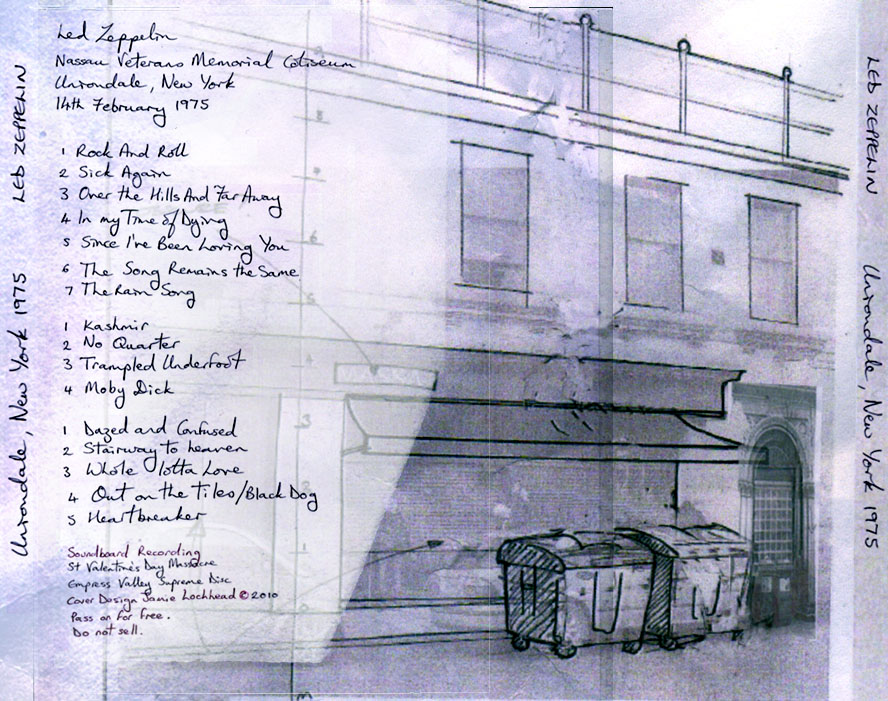 Led Zeppelin
Nassau Veterans Memorial Coliseum
Unrondale, New York
14th February 1975
1 Rock And Roll
2 Sick Again
3 Over the Hills And Far Away
4 In my Time of Dying
5 Since I've Been Loving You
6 The Song Remains the Same
7 The Rain Song
1 Kashmir
2 No Quarter
3 Trampled Underfoot
4 Moby Dick
1 Dazed and Confused
2 Stairway to heaven
3 Whole lotta Love
4 Out on the Tiles/Black Dog
5 Heartbreaker
Soundboard Recording
St Valentine's Day Massacre
Empress Valley Supreme Disc
Cover Design Jamie Lochhead © 2010
Pass on for free.
Do not sell.
Unrondale, New York 1975 LED ZEPPELIN
LED ZEPPELIN Unrondale, New York 1975